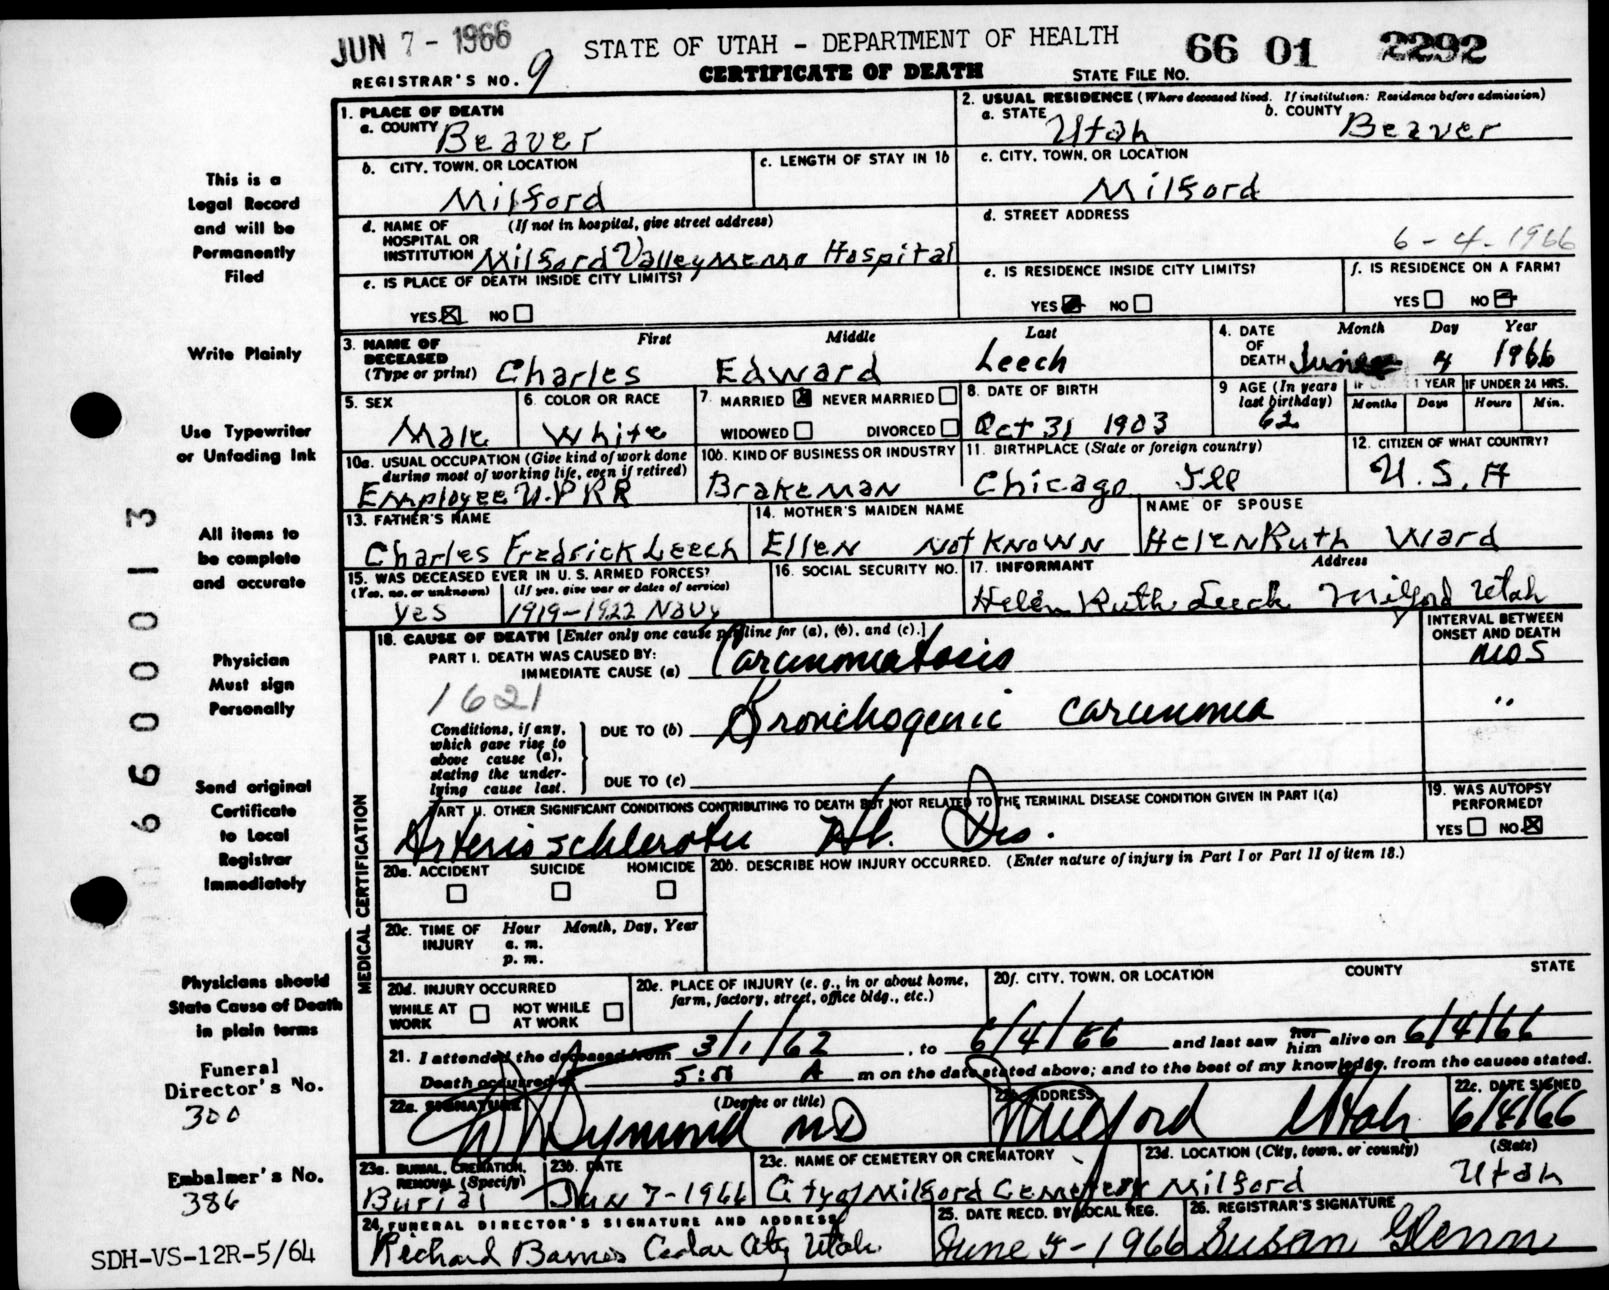 JUN 7 - 1966
STATE OF UTAH - DEPARTMENT OF HEALTH
66 01 2292
REGISTRAR'S NO. 9
CERTIFICATE OF DEATH
STATE FILE NO.
This is a
Legal Record
and will be
Permanently
Filed
Write Plainly
Use Typewriter
or Unfading Ink
All items to
be complete
and accurate
Physician
Must sign
Personally
Send original
Certificate
to Local
Registrar
Immediately
Physicians should
State Cause of Death
in plain terms
Funeral
Director's No.
300
Embalmer's No.
386
SDH-VS-12R-5/64
6600013
1. PLACE OF DEATH
a. COUNTY Beaver
2. USUAL RESIDENCE (Where deceased lived. If institution: Residence before admission)
a. STATE Utah b. COUNTY Beaver
b. CITY, TOWN, OR LOCATION Milford
c. LENGTH OF STAY IN 1b
c. CITY, TOWN, OR LOCATION Milford
d. NAME OF HOSPITAL OR INSTITUTION (If not in hospital, give street address)
Milford Valley Memo Hospital
d. STREET ADDRESS
6-4-1966
e. IS PLACE OF DEATH INSIDE CITY LIMITS?
YES NO
e. IS RESIDENCE INSIDE CITY LIMITS?
YES NO
f. IS RESIDENCE ON A FARM?
YES NO
3. NAME OF DECEASED (Type or print)
First Middle Last
Charles Edward Leech
4. DATE OF DEATH Month Day Year
June 4 1966
5. SEX Male
6. COLOR OR RACE White
7. MARRIED NEVER MARRIED
WIDOWED DIVORCED
8. DATE OF BIRTH
Oct 31 1903
9 AGE (In years last birthday) 62
1 YEAR Months Days
IF UNDER 24 HRS. Hours Min.
10a. USUAL OCCUPATION (Give kind of work done during most of working life, even if retired)
Employee U.P.RR
10b. KIND OF BUSINESS OR INDUSTRY
Brakeman
11. BIRTHPLACE (State or foreign country)
Chicago Ill
12. CITIZEN OF WHAT COUNTRY?
U.S.A
13. FATHER'S NAME
Charles Fredrick Leech
14. MOTHER'S MAIDEN NAME
Ellen Not Known
NAME OF SPOUSE
Helen Ruth Ward
15. WAS DECEASED EVER IN U.S. ARMED FORCES?
(Yes, no, or unknown) (If yes, give war or dates of service)
Yes 1919-1922 Navy
16. SOCIAL SECURITY NO.
17. INFORMANT Address
Helen Ruth Leech Milford Utah
MEDICAL CERTIFICATION
18. CAUSE OF DEATH [Enter only one cause per line for (a), (b), and (c).]
INTERVAL BETWEEN ONSET AND DEATH
PART I. DEATH WAS CAUSED BY:
IMMEDIATE CAUSE (a) Carcinomatosis mos
1621
Conditions, if any, which gave rise to above cause (a), stating the underlying cause last.
DUE TO (b) Bronchogenic carcinoma "
DUE TO (c)
PART II. OTHER SIGNIFICANT CONDITIONS CONTRIBUTING TO DEATH BUT NOT RELATED TO THE TERMINAL DISEASE CONDITION GIVEN IN PART I(a)
Arterioschlerotic Ht. Dis.
19. WAS AUTOPSY PERFORMED?
YES NO
20a. ACCIDENT SUICIDE HOMICIDE
20b. DESCRIBE HOW INJURY OCCURRED. (Enter nature of injury in Part I or Part II of item 18.)
20c. TIME OF INJURY Hour Month, Day, Year
a. m.
p. m.
20d. INJURY OCCURRED
WHILE AT WORK NOT WHILE AT WORK
20e. PLACE OF INJURY (e. g., in or about home, farm, factory, street, office bldg., etc.)
20f. CITY, TOWN, OR LOCATION COUNTY STATE
21. I attended the deceased from 3/1/62, to 6/4/66 and last saw her him alive on 6/4/66
Death occurred at 5:50 A m on the date stated above; and to the best of my knowledge, from the causes stated.
22a. SIGNATURE (Degree or title)
Symond MD
22b. ADDRESS
Milford Utah
22c. DATE SIGNED
6/4/66
23a. BURIAL, CREMATION, REMOVAL (Specify)
Burial
23b. DATE
Jun 7-1966
23c. NAME OF CEMETERY OR CREMATORY
City of Milford Cemetery
23d. LOCATION (City, town, or county) (State)
Milford Utah
24. FUNERAL DIRECTOR'S SIGNATURE AND ADDRESS
Richard Barnes Cedar City Utah
25. DATE RECD. BY LOCAL REG.
June 5-1966
26. REGISTRAR'S SIGNATURE
Susan Glenn